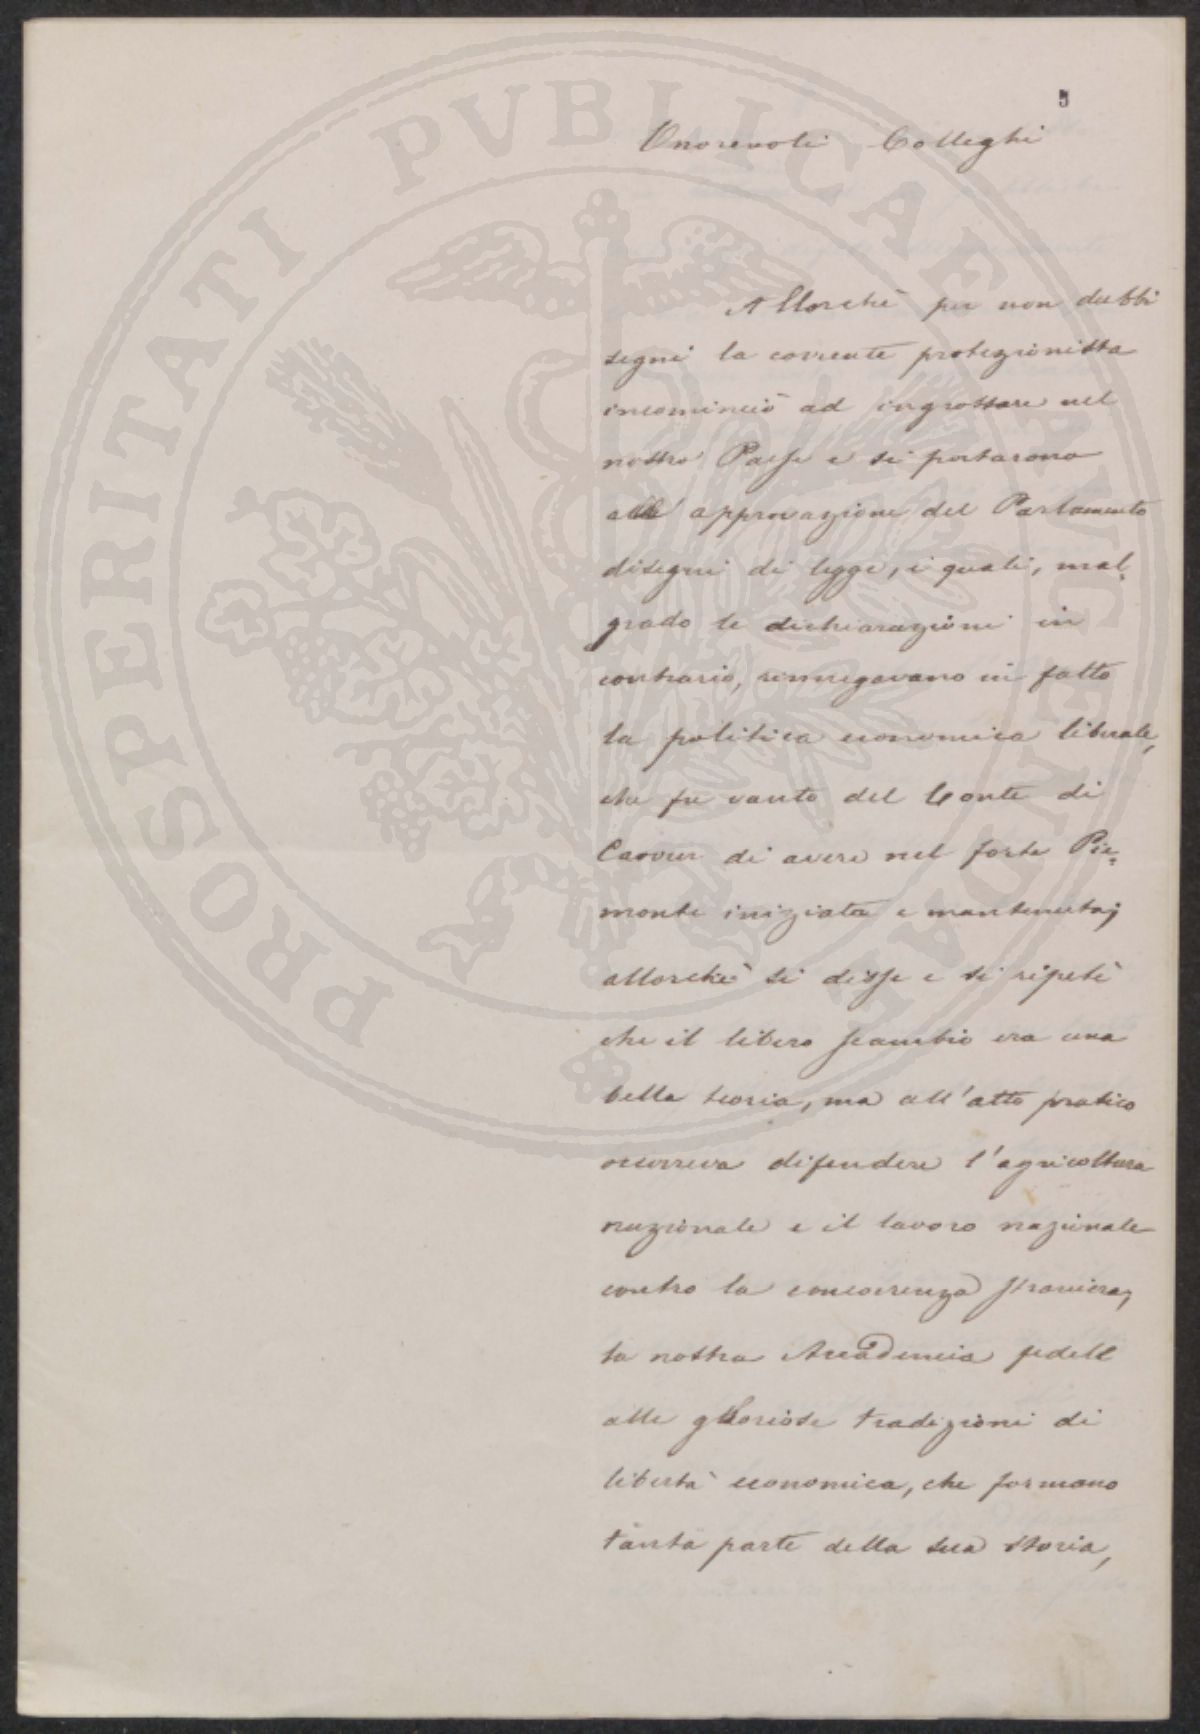 5
Onorevoli Colleghi
Allorchè per non dubbi
segni la corrente protezionista
incominciò ad ingrossare nel
nostro Paese e si portarono
all'approvazione del Parlamento
disegni di legge, i quali, mal-
grado le dichiarazioni in
contrario, rinnegavano in fatto
la politica economica liberale,
che fu vanto del Conte di
Cavour di avere nel forte Pie-
monte iniziata e mantenuta;
allorchè si disse e si ripetè
che il libero scambio era una
bella teoria, ma all'atto pratico
occorreva difendere l'agricoltura
nazionale e il lavoro nazionale
contro la concorrenza straniera,
la nostra Accademia fedele
alle gloriose tradizioni di
libertà economica, che formano
tanta parte della sua storia,
PROSPERITATI PVBLICAE AVGENDAE